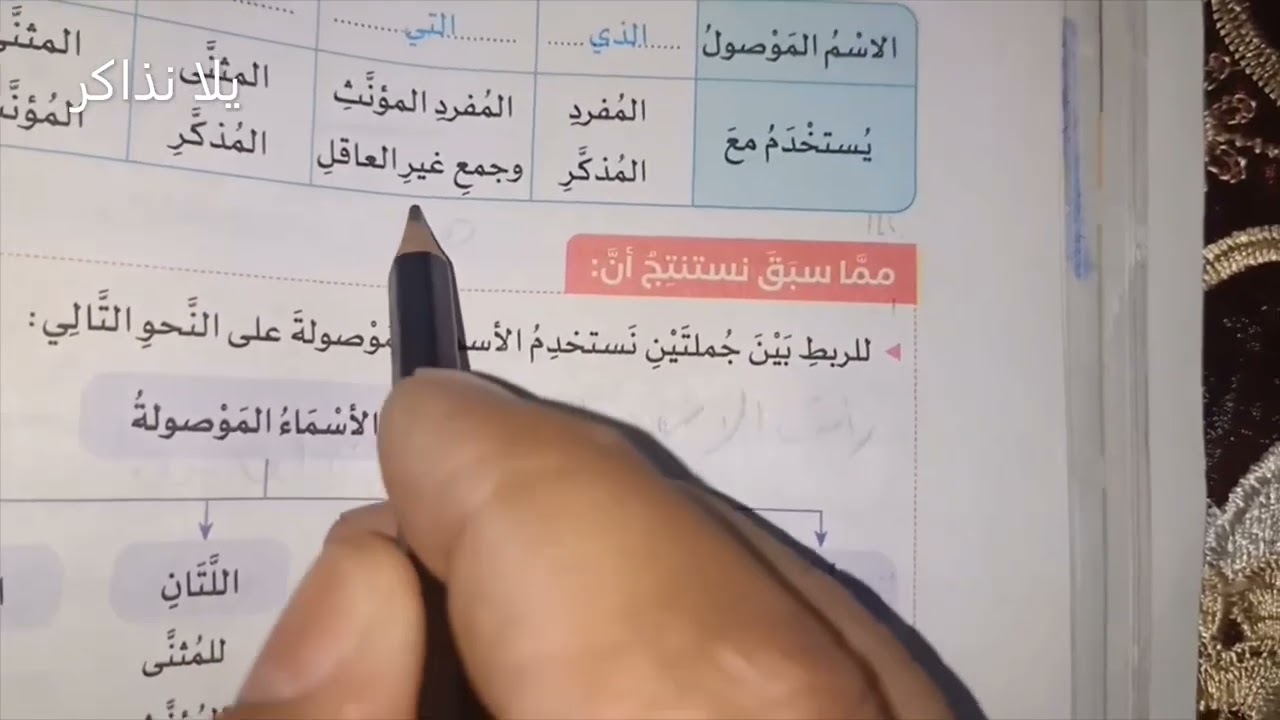 الاسْمُ المَوْصولُ ......الذي...... ......التي......
يُستخْدَمُ معَ
المُفردِ
المُذكَّرِ
المُفردِ المؤنَّثِ
وجمعِ غيرِ العاقلِ
المثنَّى
المُذكَّرِ
يلا نذاكر
ممَّا سبَقَ نستنتِجُ أنَّ:
للربطِ بَيْنَ جُملتَيْنِ نَستخدِمُ على النَّحوِ التَّالِي:
الأسْمَاءُ المَوْصولةُ
اللَّتَانِ
للمُثنَّى